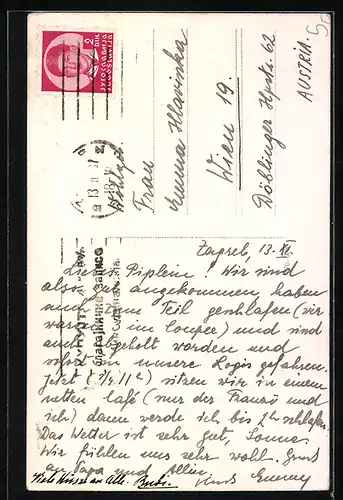 2 ДИН
ЈУГОСЛАВИЈА
JUGOSLAVIJA
Wohlgeb.
Frau
Emma Hlavinka
Wien 19.
Döblinger Hpstr. 62
AUSTRIA
Zagreb, 13. XI.
Liebe Piplein! Wir sind
also gut angekommen, haben
zum Teil geschlafen (wir
waren im Coupee) und sind
auch geholt worden und
sofort in unsere Logis gefahren.
Jetzt (3/4 11h) sitzen wir in einem
netten Café (nur der Franzi und
ich) dann werde ich bis 2h schlafen.
Das Wetter ist sehr gut, Sonne.
Wir fühlen uns sehr wohl. Gruß
an Papa und
Viele Küsse an Alle.